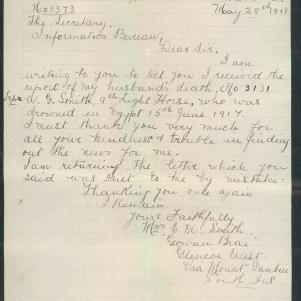 No 3373
May 28th 1918
The Secretary,
Information Bureau,
Dear Sir,
I am
writing to you to tell you I received the
report of my husband's death, No 3131
Tpr. W. G. Smith, 9th Light Horse, who was
drowned in Egypt 15th June 1917.
I must thank you very much for
all your kindness & trouble in finding
out the news for me.
I am returning the letter which you
said was sent to me by mistake.
Thanking you once again
I Remain
Yours Faithfully
Mrs E. M. Smith.
"Gowan Brae"
Glencoe West.
Via Mount Gambier
South Aus